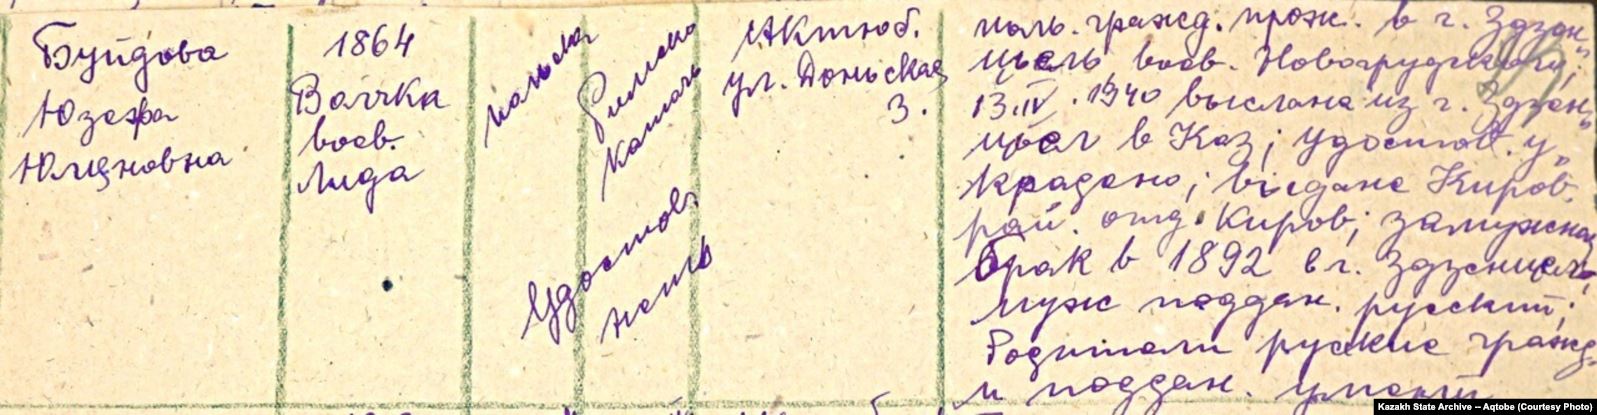 Буйдова
Юзефа
Юлиновна
1864
Вачка
воев.
Лида
польск.
Римско
Католич
Удостов.
несть
Актюб.
ул. Доньская
3.
поль. гражд. прож. в г. Здзен„
цьель воев. Новогрудского;
13.IV.1940 выслана из г. Здзен„
цьел в Каз; удостов. у„
крадено; выдане Киров.
рай. отд. Киров; замужная
брак в 1892 в г. Здзенцель
муж поддан. русский;
Родители руские гражд.
и поддан.
Kazakh State Archive -- Aqtobe (Courtesy Photo)